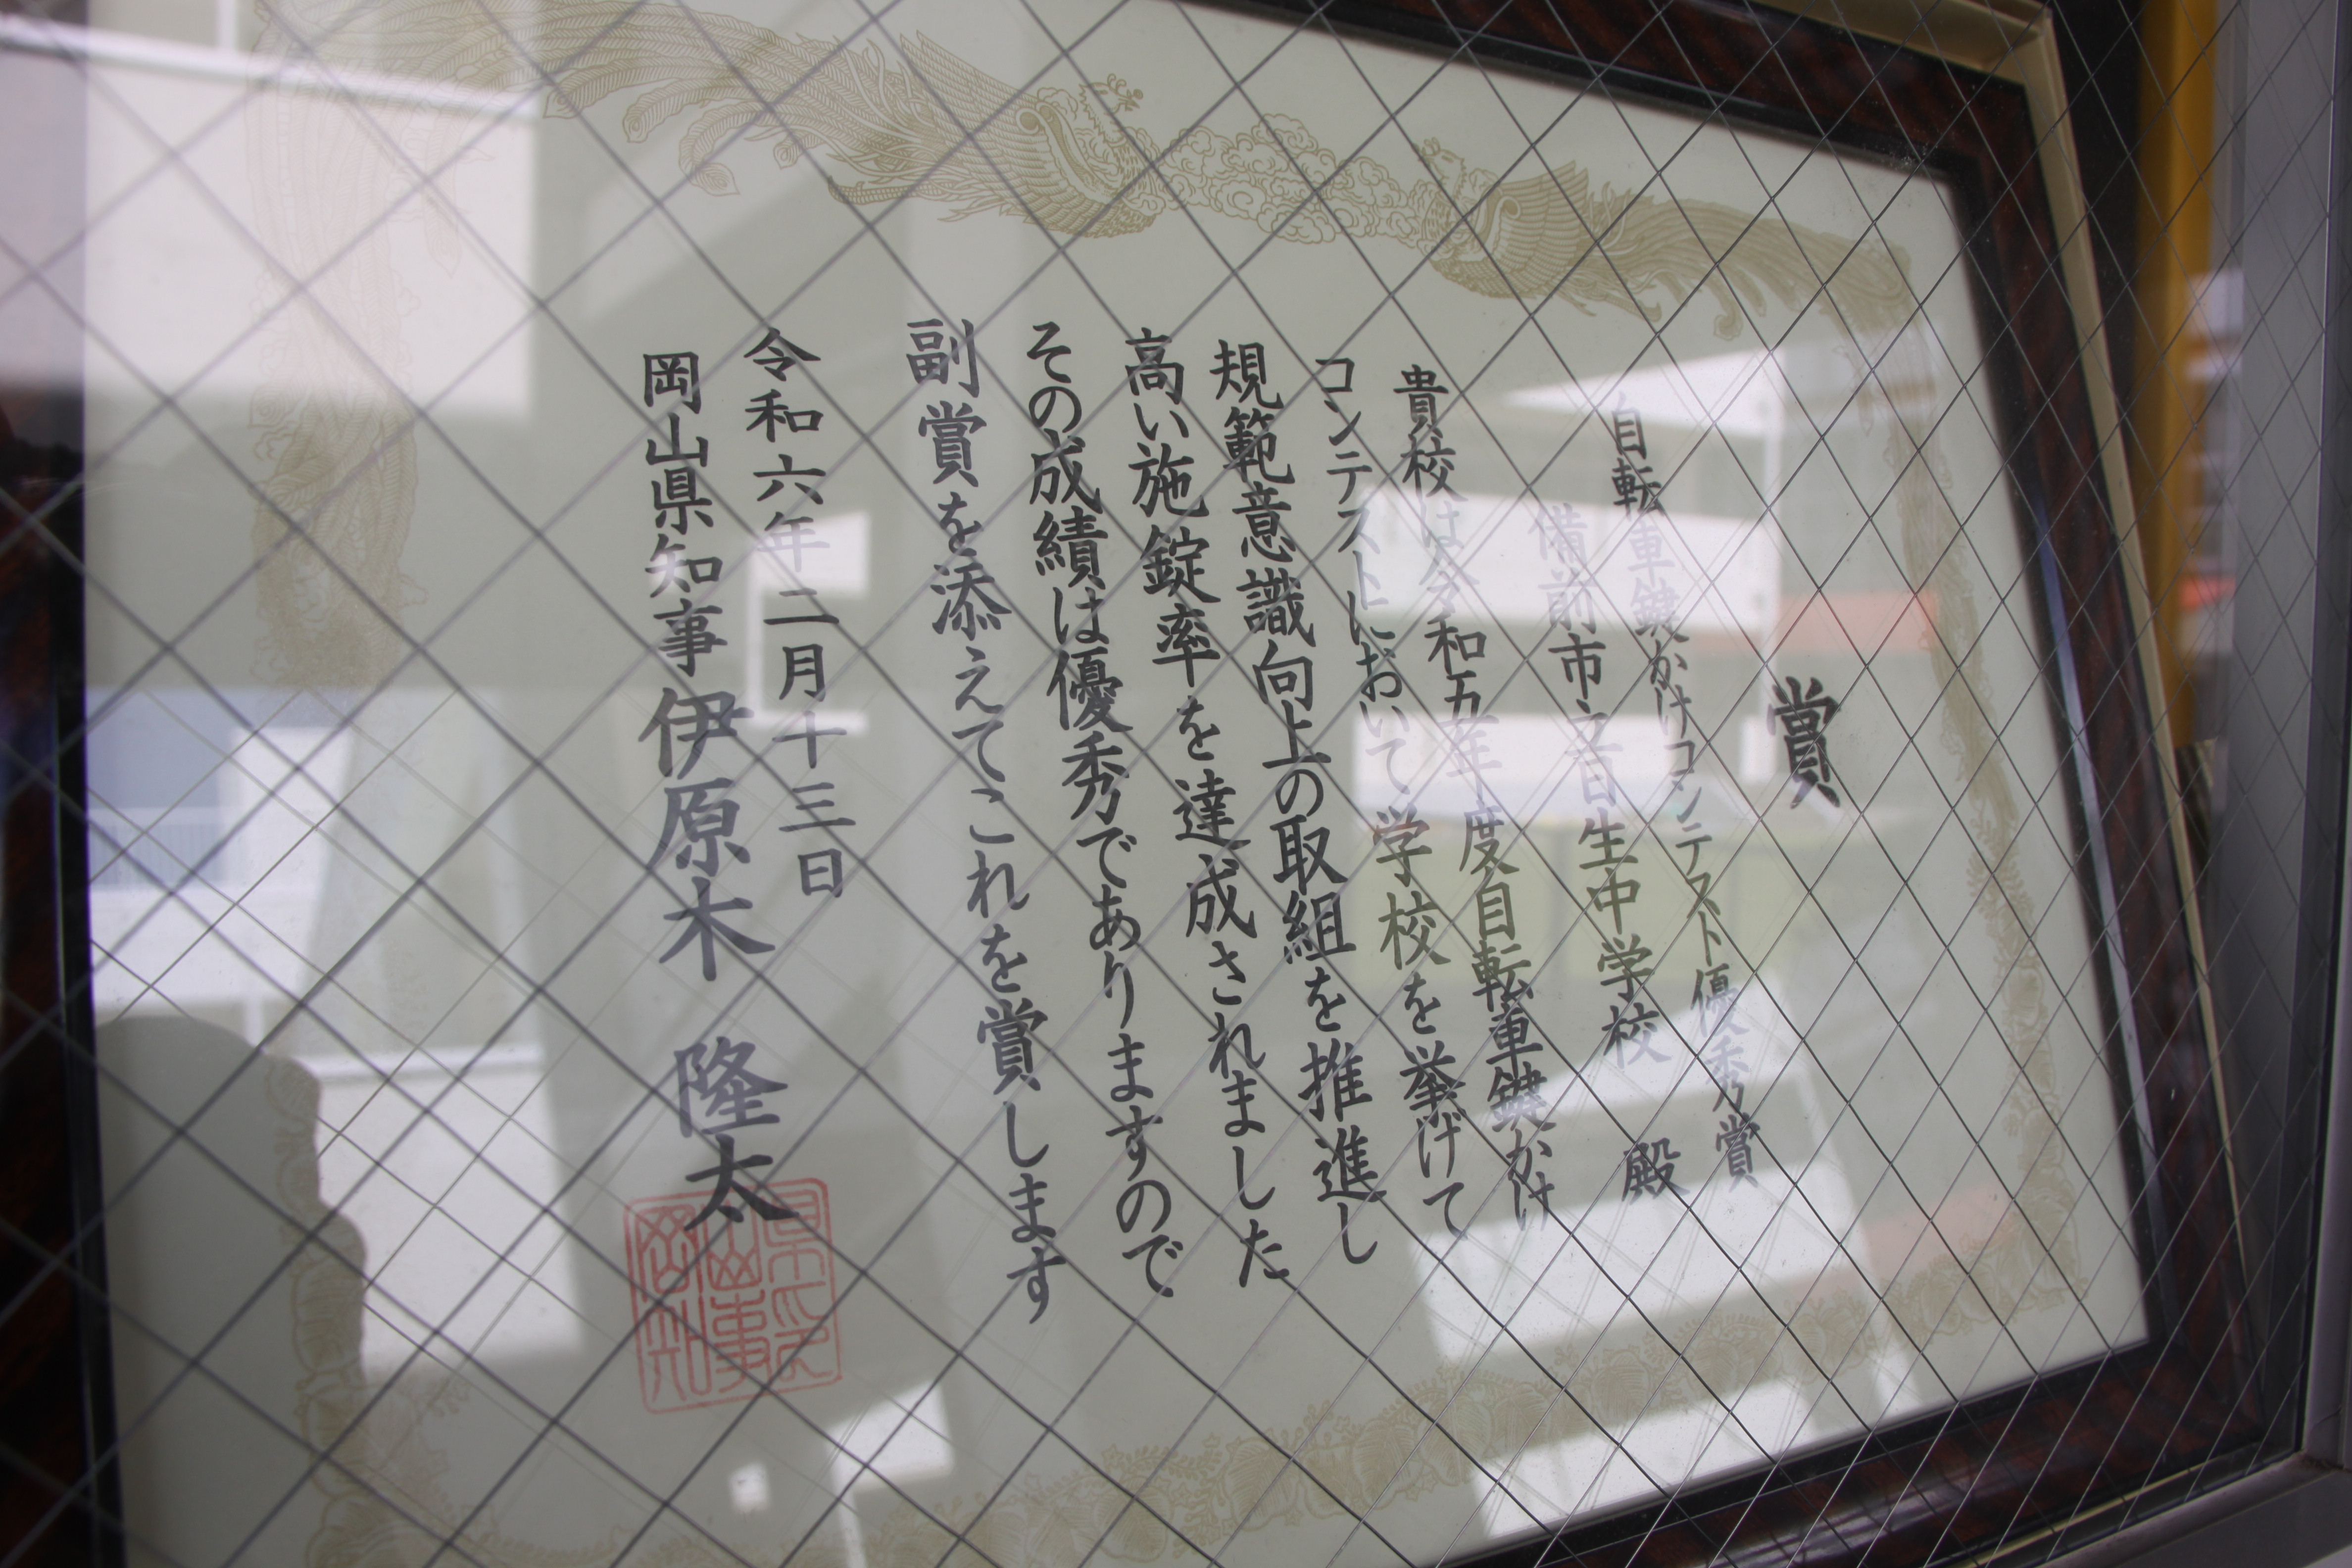 賞
自転車鍵かけコンテスト優秀賞
備前市立吉生中学校 殿
貴校は令和五年度自転車鍵かけ
コンテストにおいて学校を挙げて
規範意識向上の取組を推進し
高い施錠率を達成されました
その成績は優秀でありますので
副賞を添えてこれを賞します
令和六年二月十三日
岡山県知事 伊原木 隆太
岡山県知事之印